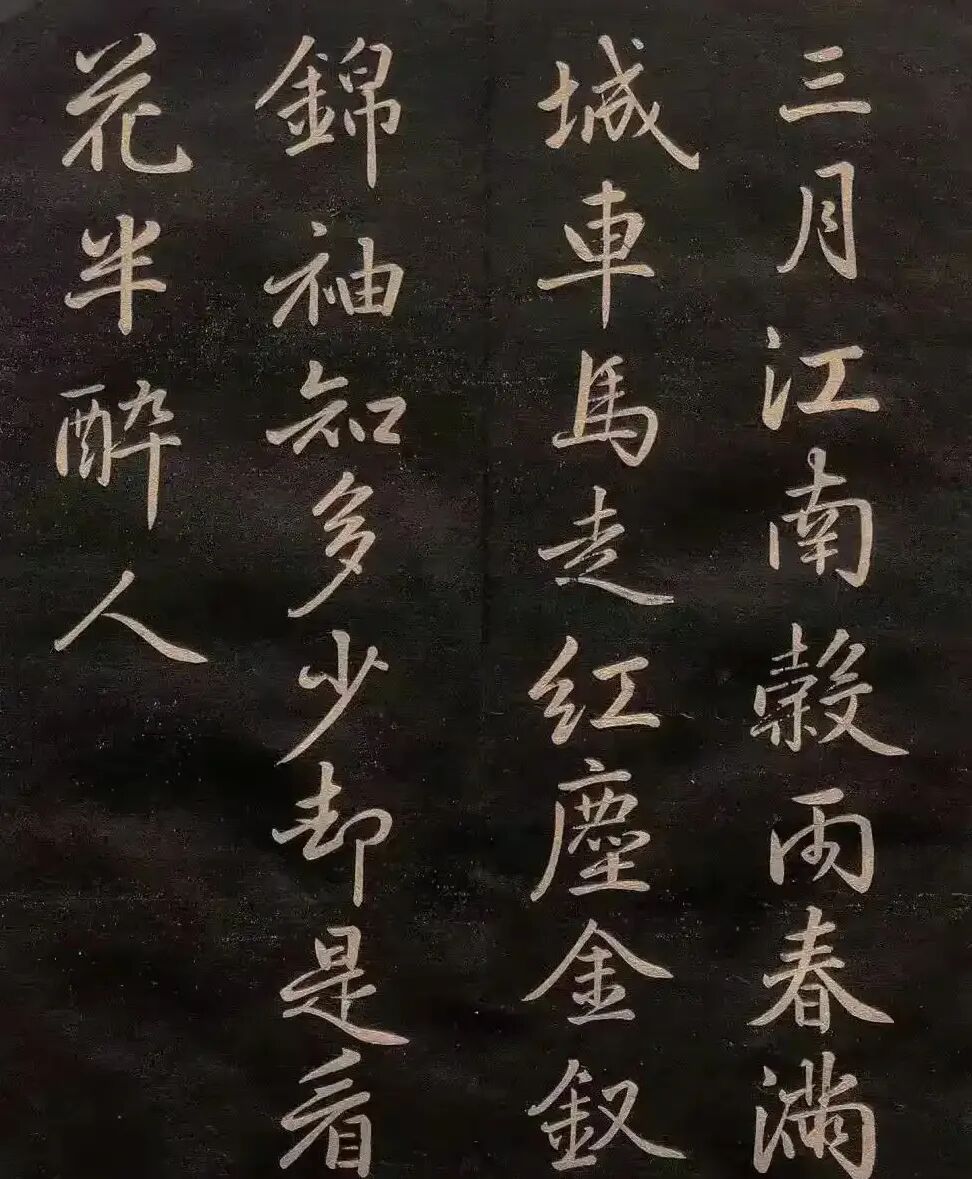 三月江南榖雨春滿
城車馬走紅塵金釵
錦袖知多少却是看
花半醉人